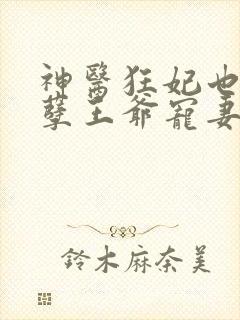 神醫狂妃也
孽王爺寵妻
鈴木麻奈美